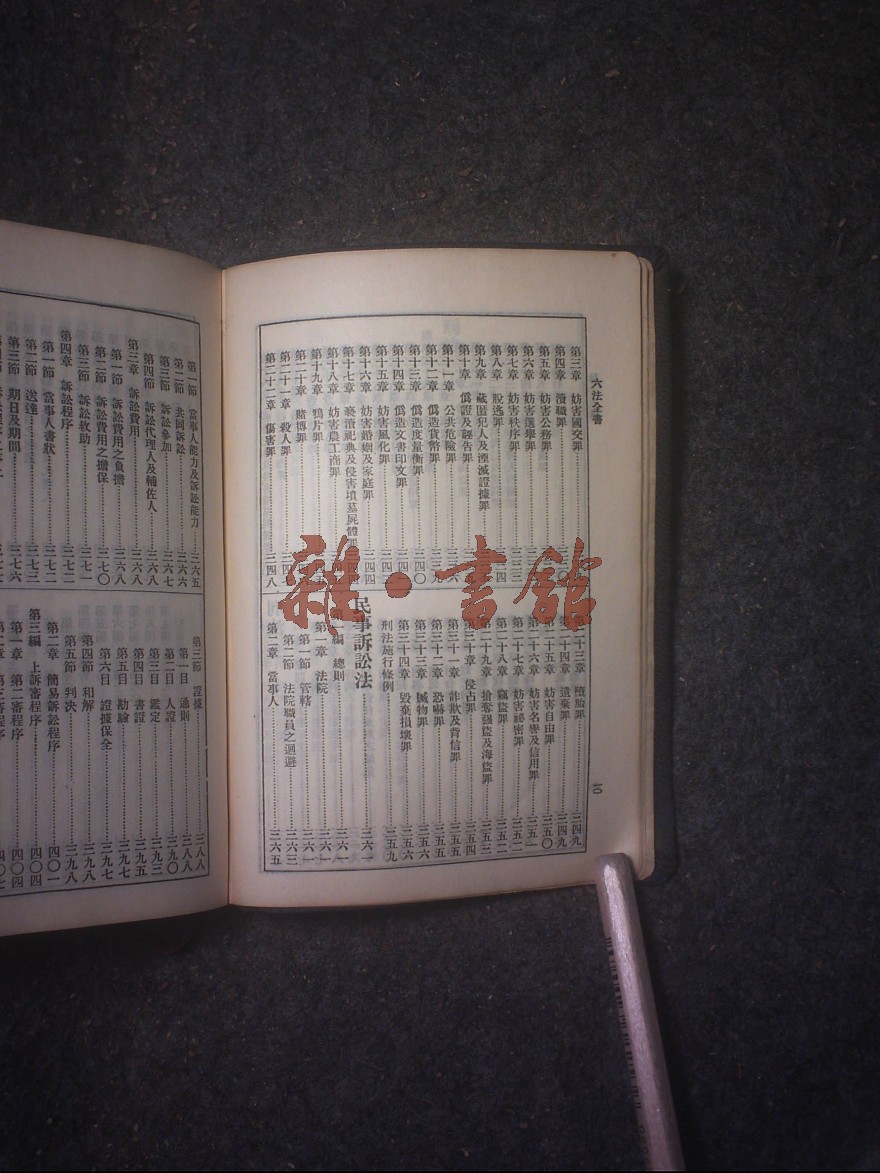 六法全書
第三章 妨害國交罪
第四章 瀆職罪
第五章 妨害公務罪
第六章 妨害選舉罪
第七章 妨害秩序罪
第八章 脫逃罪
第九章 藏匿犯人及湮滅證據罪
第十章 僞證及誣告罪
第十一章 公共危險罪
第十二章 僞造貨幣罪
第十三章 僞造度量衡罪
第十四章 僞造文書印文罪
第十五章 妨害風化罪
第十六章 妨害婚姻及家庭罪
第十七章 褻瀆祀典及侵害墳墓屍體罪
第十八章 妨害農工商罪
第十九章 鴉片罪
第二十章 賭博罪
第二十一章 殺人罪
第二十二章 傷害罪 三四八
十三章 墮胎罪 三四九
十四章 遺棄罪 三四九
二十五章 妨害自由罪 三五〇
第二十六章 妨害名譽及信用罪 三五一
第二十七章 妨害祕密罪 三五二
第二十八章 竊盜罪 三五二
第二十九章 搶奪強盜及海盜罪 三五三
第三十章 侵占罪 三五四
第三十一章 詐欺及背信罪 三五五
第三十二章 恐嚇罪 三五五
第三十三章 贓物罪 三五六
第三十四章 毀棄損壞罪 三五六
刑法施行條例 三五九
民事訴訟法 三六一
第一編 總則 三六一
第一章 法院 三六一
第一節 管轄 三六一
第二節 法院職員之迴避 三六三
第二章 當事人 三六五
一〇
雜·書館
第一節 當事人能力及訴訟能力 三六五
第二節 共同訴訟 三六六
第三節 訴訟參加 三六七
第四節 訴訟代理人及輔佐人 三六八
第三章 訴訟費用 三六八
第一節 訴訟費用之負擔 三六八
第二節 訴訟費用之擔保 三七〇
第三節 訴訟救助 三七一
第四章 訴訟程序 三七二
第一節 當事人書狀 三七二
第二節 送達 三七三
第三節 期日及期間 三七六
第三節 證據 三八八
第一目 通則 三八八
第二目 人證 三九〇
第三目 鑑定 三九四
第四目 書證 三九五
第五目 勘驗 三九七
第六目 證據保全 三九七
第四節 和解 三九八
第五節 判決 三九八
第二章 簡易訴訟程序 四〇一
第三編 上訴審程序 四〇四
第一章 第二審程序 四〇四